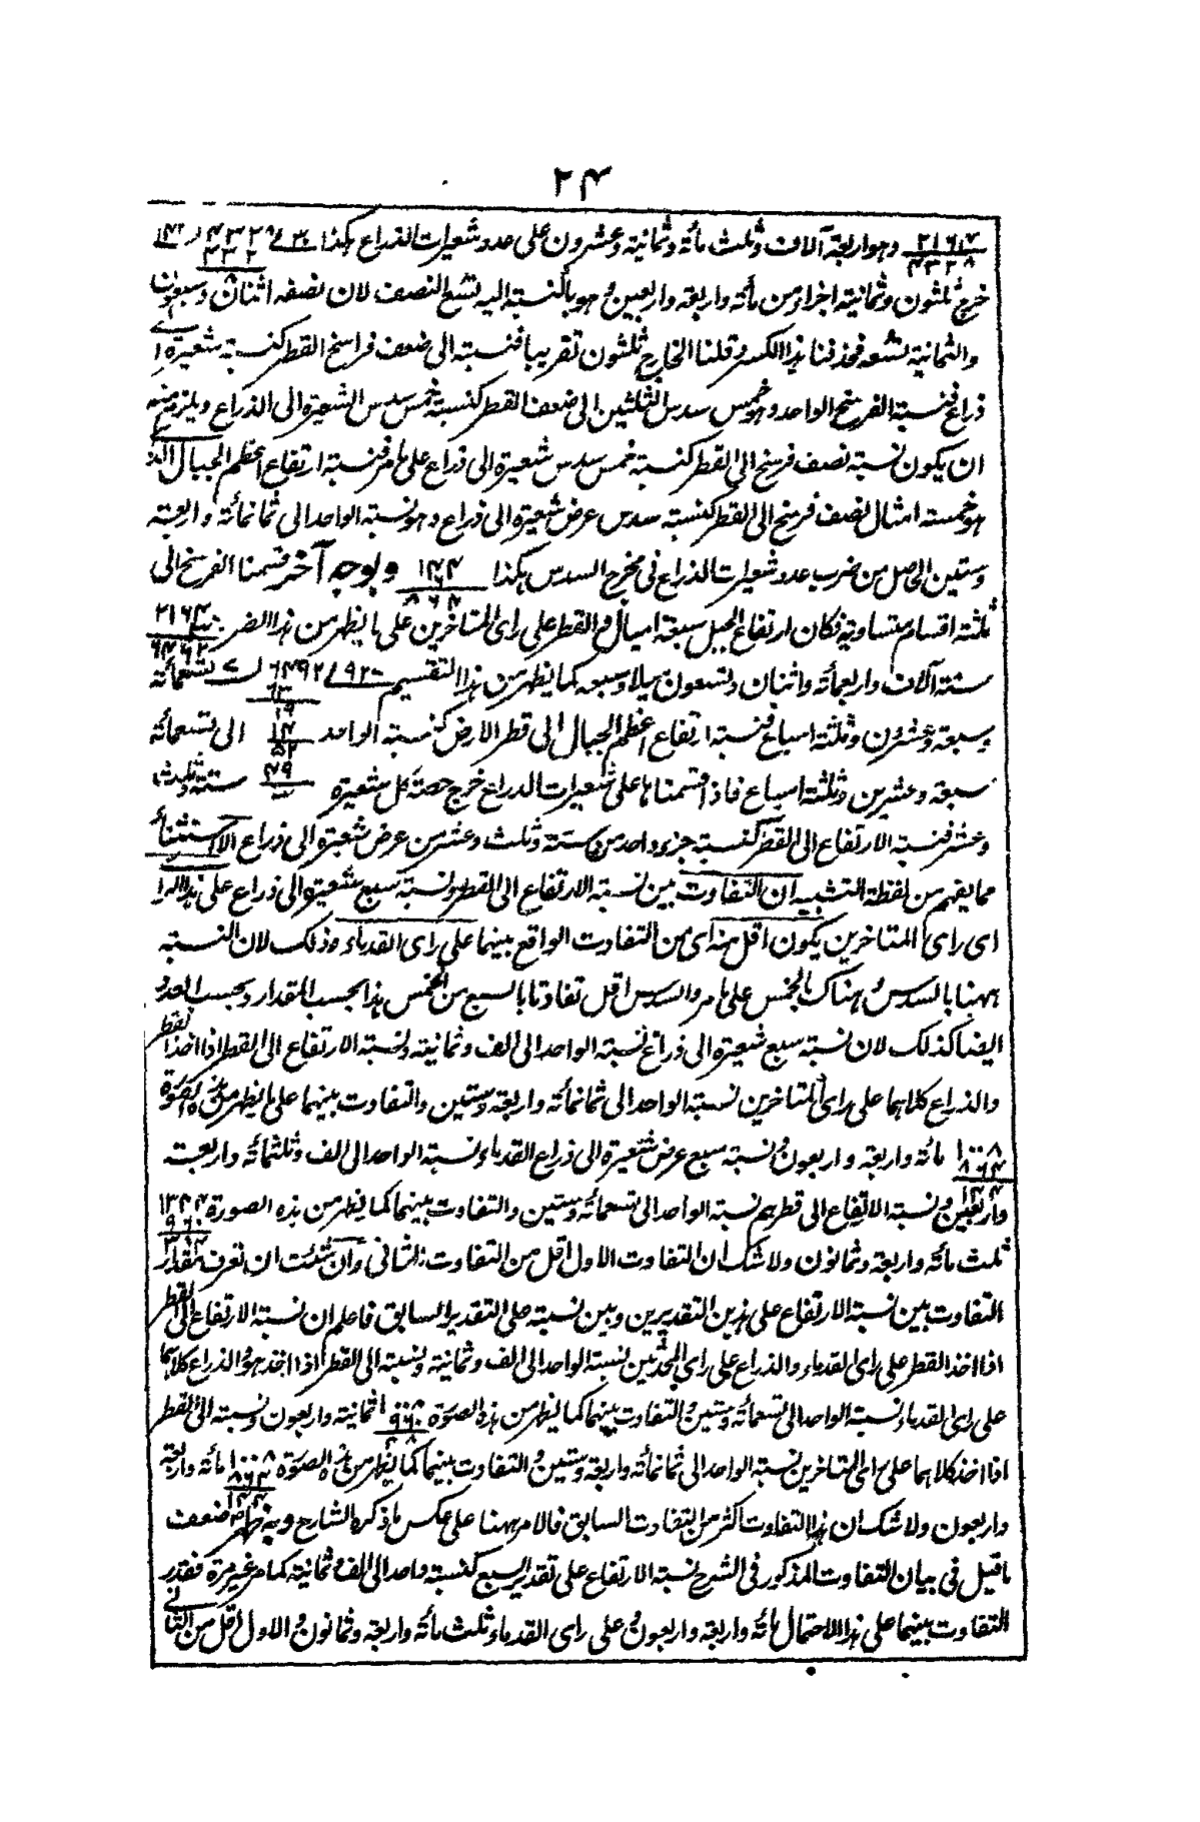 ۲۴
۲۱۶۴ وهو اربعة آلاف وثلث مأة وثمانية وعشرون على عدد شعيرات الذراع هكذا
۴۳۲۸
خرج ثلثون وثمانية اجزاء من مأة واربعة واربعين وهو بالنسبة اليه تسع النصف لان نصفه اثنان وسبعون
والثمانية تسعه فحذفنا هذا الكسر وقلنا الخارج ثلثون تقريبا فنسبته الى ضعف فراسخ القطر كنسبة شعيرة الے
ذراع فنسبة الفرسخ الواحد وهو خمس سدس الثلثين الى ضعف القطر كنسبة خمس سدس الشعيرة الى الذراع ويلزم منه
ان يكون نسبة نصف فرسخ الى القطر كنسبة خمس سدس شعيرة الى ذراع على ما مر فنسبة ارتفاع اعظم الجبال الذے
هو خمسة امثال نصف فرسخ الى القطر كنسبة سدس عرض شعيرة الى ذراع وهو نسبة الواحد الى ثمانمائة واربعة
وستين الحاصل من ضرب عدد شعيرات الذراع فى مخرج السدس هكذا ۱۴۴ وبوجه آخر قسمنا الفرسخ الى
۸۶۴
ثلثة اقسام متساوية فكان ارتفاع الجبل سبعة اميال والقطر على راى المتاخرين على ما يظهر من هذا الضرب ۲۱۶۴
۶۴۹۲
ستة آلاف واربعمأة واثنان وتسعون ميلا وسبعه كما يظهر من هذا التقسيم ۶۴۹۲ تسعمائة
وسبعة وعشرون وثلثة اسباع فنسبة ارتفاع اعظم الجبال الى قطر الارض كنسبة الواحد الى تسعمائة
وسبعة وعشرين وثلثة اسباع فاذا قسمناها على شعيرات الذراع خرج حصة كل شعيرة ستة وثلث
وعشر فنسبة الارتفاع الى القطر كنسبة جزء واحد من ستة وثلث وعشر من عرض شعيرة الى ذراع الاستثناء
مما يفهم من لفظة التشبيه ان التفاوت بين نسبة الارتفاع الى القطر ونسبة سبع شعيرة الى ذراع على هذا الراے
اى راى المتاخرين يكون اقل هنا اى من التفاوت الواقع بينهما على راى القدماء وذلك لان النسبة
ههنا بالسدس وهناك بالخمس على ما مر والسدس اقل تفاوتا بالسبع من الخمس هذا بحسب المقدار وبحسب العدد
ايضا كذلك لان نسبة سبع شعيرة الى ذراع نسبة الواحد الى الف وثمانية ونسبة الارتفاع الى القطر اذا اخذ القطر
والذراع كلاهما على راى المتاخرين نسبة الواحد الى ثمانمائة واربعة وستين والتفاوت بينهما على ما يظهر من هذه الصورة
۱۰۰۸ مائة واربعة واربعون ونسبة سبع عرض شعيرة الى ذراع القدماء نسبة الواحد الى الف وثلثمائة واربعة
۸۶۴
۱۴۴
واربعين ونسبة الارتفاع الى قطرهم نسبة الواحد الى تسعمائة وستين والتفاوت بينهما كما يظهر من هذه الصورة ۱۳۴۴
۹۶۰
ثلث مائة واربعة وثمانون ولا شك ان التفاوت الاول اقل من التفاوت الثانى وان شئت ان تعرف مقدار
التفاوت بين نسبة الارتفاع على هذين التقديرين وبين نسبة على التقدير السابق فاعلم ان نسبة الارتفاع الى القطر
اذا اخذ القطر على راى القدماء والذراع على راى المحدثين نسبة الواحد الى الف وثمانية ونسبته الى القطر اذا اخذ هو والذراع كلاهما
على راى القدماء نسبة الواحد الى تسعمائة وستين والتفاوت بينهما كما يظهر من هذه الصورة ۱۰۰۸ ثمانية واربعون ونسبته الى القطر
۹۶۰
اذا اخذ كلاهما على راى المتاخرين نسبة الواحد الى ثمانمائة واربعة وستين والتفاوت بينهما كما يظهر من هذه الصورة ۱۰۰۸ مائة واربعة
۸۶۴
۱۴۴
واربعون ولا شك ان هذا التفاوت اكثر من التفاوت السابق فالامر ههنا على عكس ما ذكره الشارح وبه ظهر ضعف
ما قيل فى بيان التفاوت المذكور فى الشرح نسبة الارتفاع على تقدير السبع كنسبة واحد الى الف وثمانية كما مر غير مرة فقدر
التفاوت بينهما على هذا الاحتمال مائة واربعة واربعون وعلى راى القدماء وثلث مائة واربعة وثمانون والاول اقل من الثانے